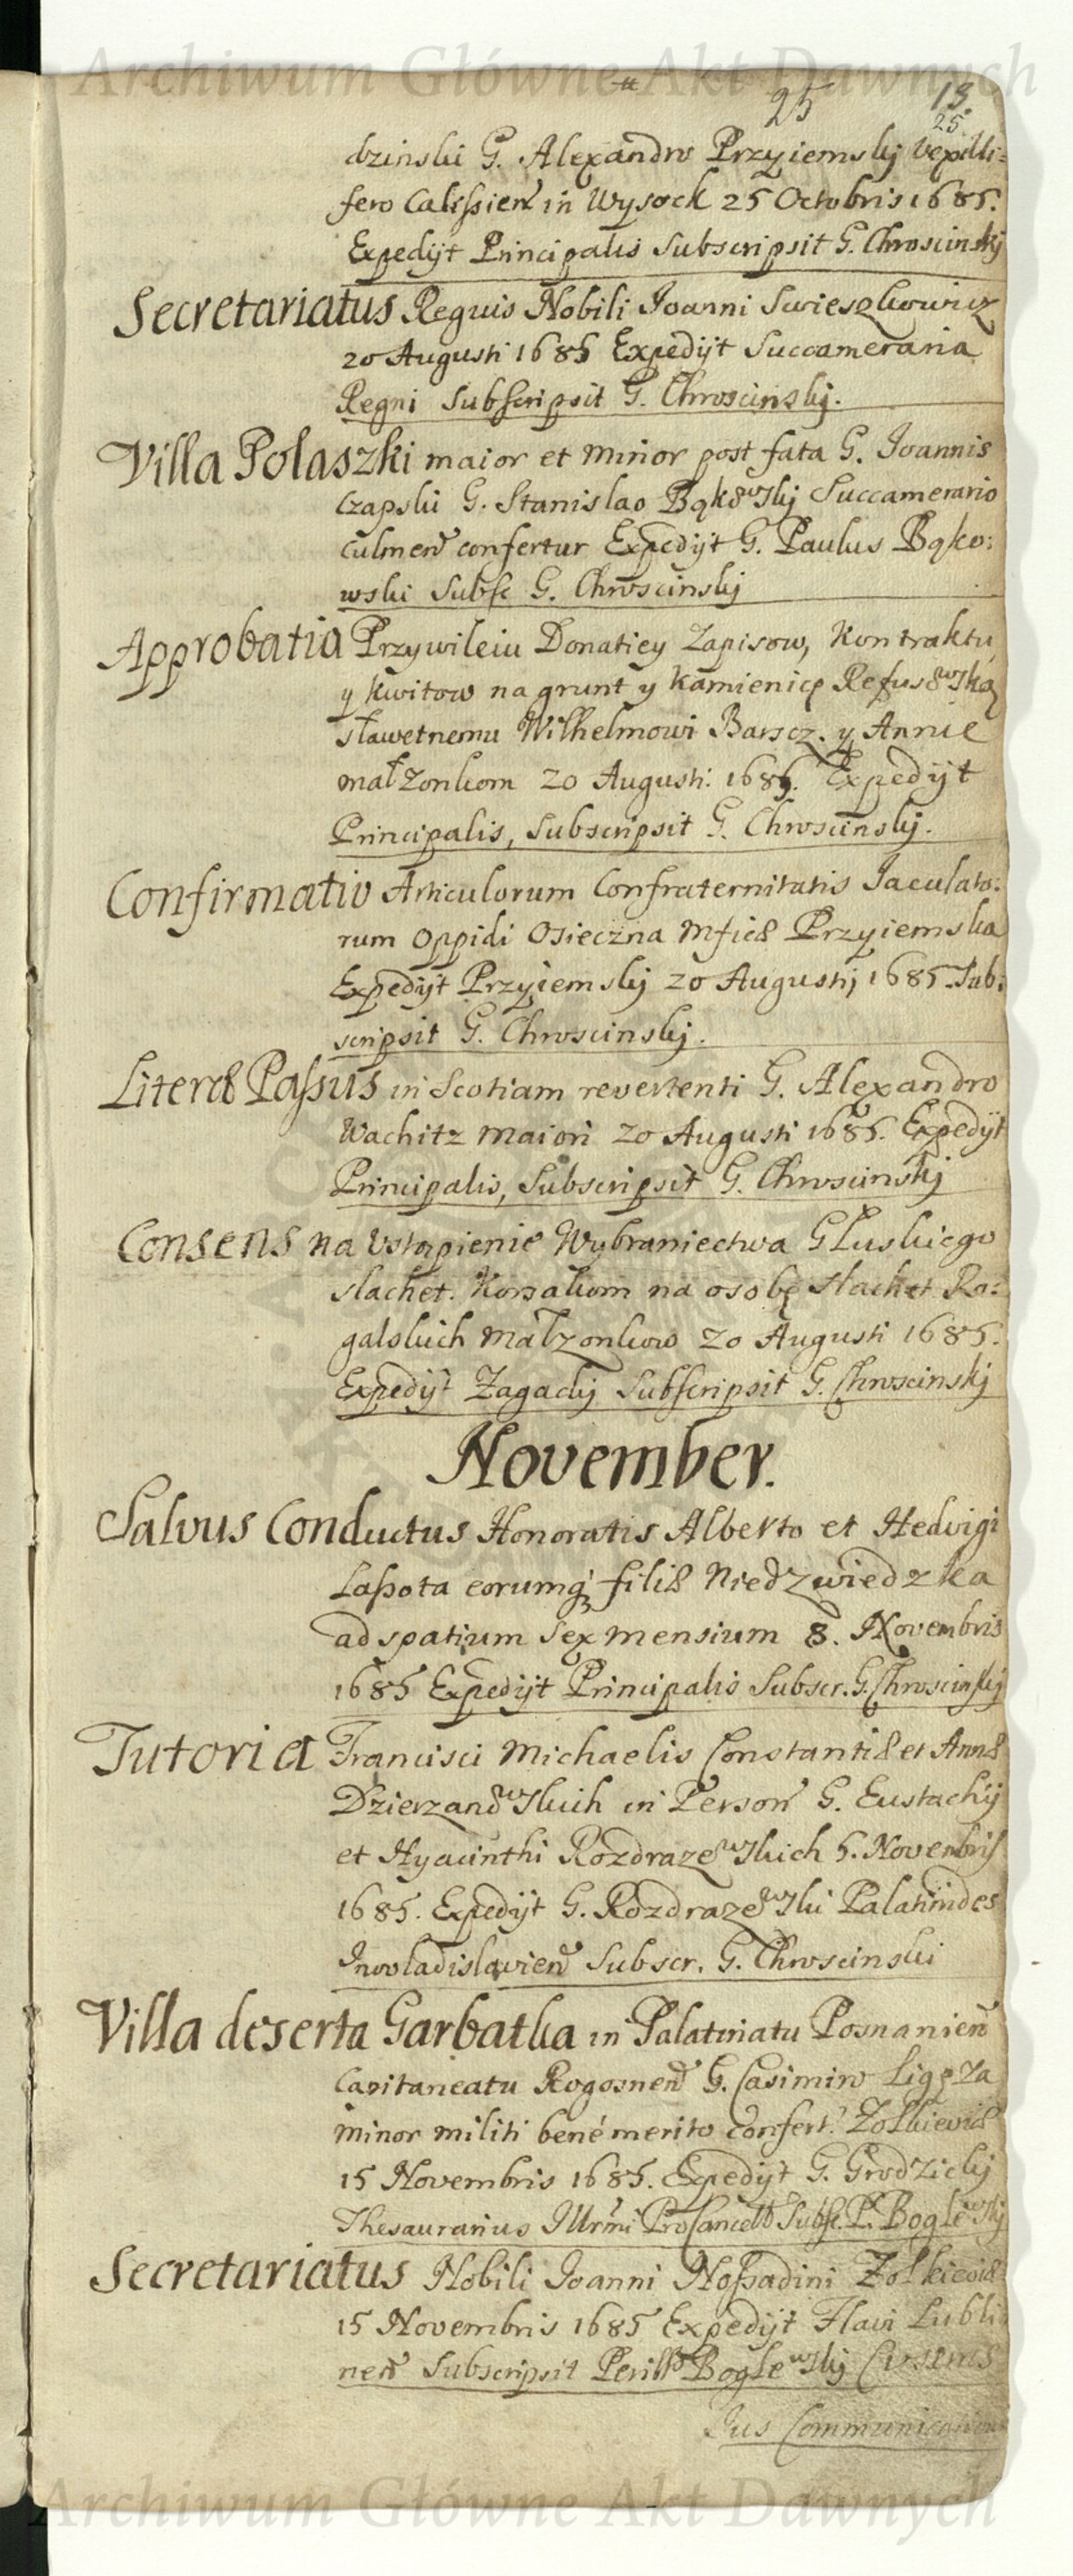 Archiwum Główne Akt Dawnych
25 13
25
dzinski G. Alexandro Przyiemskij Vexilli:
fero Calissien in Wysock 25 Octobris 1685.
Expedijt Principalis Subscripsit G. Chroscinskij
Secretariatus Reguis Nobili Joanni Swieszkowicz
20 Augusti 1685 Expedijt Succameraria
Regni Subscripsit G. Chroscinskij.
Villa Polaszki maior et minor post fata G. Joannis
Czapski G. Stanislao Bąkowskij Succamerario
Culmen confertur Expedijt G. Paulus Bąko:
wski Subsc G. Chroscinskij
Approbatia Przywileiu Donatiey Zapisow, Kontraktu
y kwitow na grunt y Kamienicę Refusowską
sławetnemu Wilhelmowi Barscz. y Annie
małżonkom 20 Augusti. 1685. Expedijt
Principalis, Subscripsit G. Chroscinskij.
Confirmatio Articulorum Confraternitatis Jaculato:
rum Oppidi Osieczna Mficae Przyiemska
Expedijt Przyiemskij 20 Augustij 1685. Sub:
scripsit G. Chroscinskij.
Literae Passus in Scotiam revertenti G. Alexandro
Wachitz maiori 20 Augusti 1685. Expedijt
Principalis, Subscripsit G. Chroscinskij
Consens na Vstąpienie Wybraniectwa Głuskiego
slachet. Korsakom na osobę slachet Ro:
galskich małzonkow 20 Augusti 1685.
Expedijt Zagackij Subscripsit G. Chroscinskij
November.
Salvus Conductus Honoratis Alberto et Hedvigi
Lassota eorumq; filiae Niedzwiedzka
ad spatium sex mensium 8. Novembris
1685 Expedijt Principalis Subscr. G. Chroscinskij
Tutoria Francisci Michaelis Constantiae et Annae
Dzierzanowskich in Person G. Eustachij
et Hyacinthi Rozdrazewskich 5. Novembris
1685. Expedijt G. Rozdrazewski Palatinides
Inovladislavien Subscr. G. Chroscinski
Villa deserta Garbatka in Palatinatu Posnanien
Capitaneatu Rogosnen G. Casimiro Ligęza
minor militi bené merito confert. Zolkieviae
15 Novembris 1685. Expedijt G. Grodzickij
Thesaurarius Illrmi ProCancell Subsc. P. Boglewskij
Secretariatus Nobili Joanni Nossadini Zolkieviae
15 Novembris 1685 Expedijt Flavi Lubli
nen Subscripsit Perill Boglewskij
Jus Communicativum
Archiwum Główne Akt Dawnych